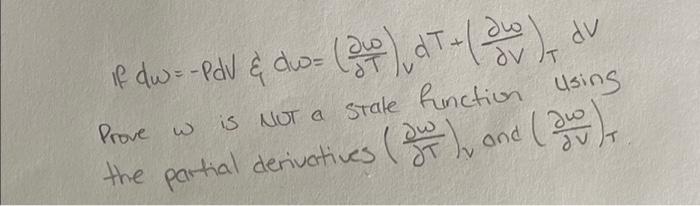 If dw = -PdV & dw = (∂w/∂T)ᵥ dT + (∂w/∂V)_T dV
Prove w is NOT a state function using
the partial derivatives (∂w/∂T)ᵥ and (∂w/∂V)_T.